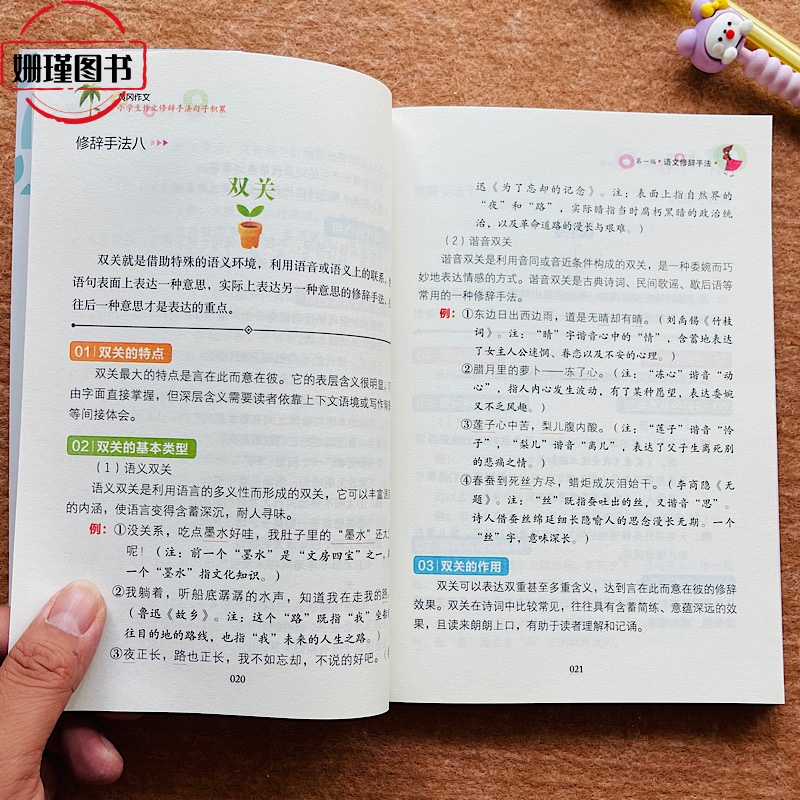 珊瑾图书
黄冈作文
小学生作文修辞手法句子积累
修辞手法八
双关
双关就是借助特殊的语义环境，利用语音或语义上的联系，
语句表面上表达一种意思，实际上表达另一种意思的修辞手法，
往后一种意思才是表达的重点。
01 双关的特点
双关最大的特点是言在此而意在彼。它的表层含义很明显，
由字面直接掌握，但深层含义需要读者依靠上下文语境或写作背
等间接体会。
02 双关的基本类型
（1）语义双关
语义双关是利用语言的多义性而形成的双关，它可以丰富语
的内涵，使语言变得含蓄深沉，耐人寻味。
例：①没关系，吃点墨水好哇，我肚子里的“墨水”还太
呢！（注：前一个“墨水”是“文房四宝”之一，
一个“墨水”指文化知识。）
②我躺着，听船底潺潺的水声，知道我在走我的路。
（鲁迅《故乡》。注：这个“路”既指“我”坐
往目的地的路线，也指“我”未来的人生之路。）
③夜正长，路也正长，我不如忘却，不说的好吧。（
020
第一编·语文修辞手法
迅《为了忘却的记念》。注：表面上指自然界的
“夜”和“路”，实际暗指当时腐朽黑暗的政治统
治，以及革命道路的漫长与艰难。）
（2）谐音双关
谐音双关是利用音同或音近条件构成的双关，是一种委婉而巧
妙地表达情感的方式。谐音双关是古典诗词、民间歌谣、歇后语等
常用的一种修辞手法。
例：①东边日出西边雨，道是无晴却有晴。（刘禹锡《竹枝
词》。注：“晴”字谐音心中的“情”，含蓄地表达
了女主人公迷惘、眷恋以及不安的心理。）
②腊月里的萝卜——冻了心。（注：“冻心”谐音“动
心”，指人内心发生波动，有了某种愿望，表达委婉
又不乏风趣。）
③莲子心中苦，梨儿腹内酸。（注：“莲子”谐音“怜
子”，“梨儿”谐音“离儿”，表达了父子生离死别
的悲痛之情。）
④春蚕到死丝方尽，蜡炬成灰泪始干。（李商隐《无
题》。注：“丝”既指蚕吐出的丝，又谐音“思”。
诗人借蚕丝绵延细长隐喻人的思念漫长无期。一个
“丝”字，意味深长。）
03 双关的作用
双关可以表达双重甚至多重含义，达到言在此而意在彼的修辞
效果。双关在诗词中比较常见，往往具有含蓄简练、意蕴深远的效
果，且读来朗朗上口，有助于读者理解和记诵。
021